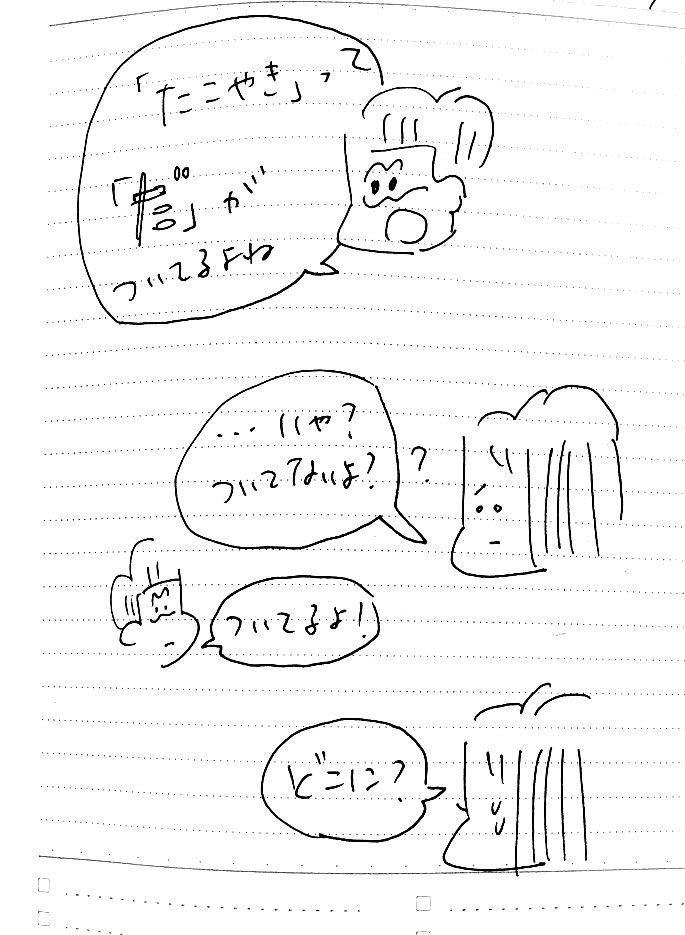 「たこやき」って
「」が
ついてるよね
…いや?
ついてないよ?
?
ついてるよ!
どこに?